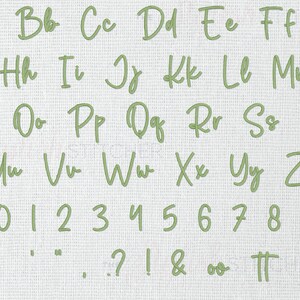 Bb Cc Dd Ee Ff
Hh Ii Jj Kk Ll M
Oo Pp Qq Rr Ss
Uu Vv Ww Xx Yy Z
0 1 2 3 4 5 6 7 8
' " . , ? ! & ∞ π